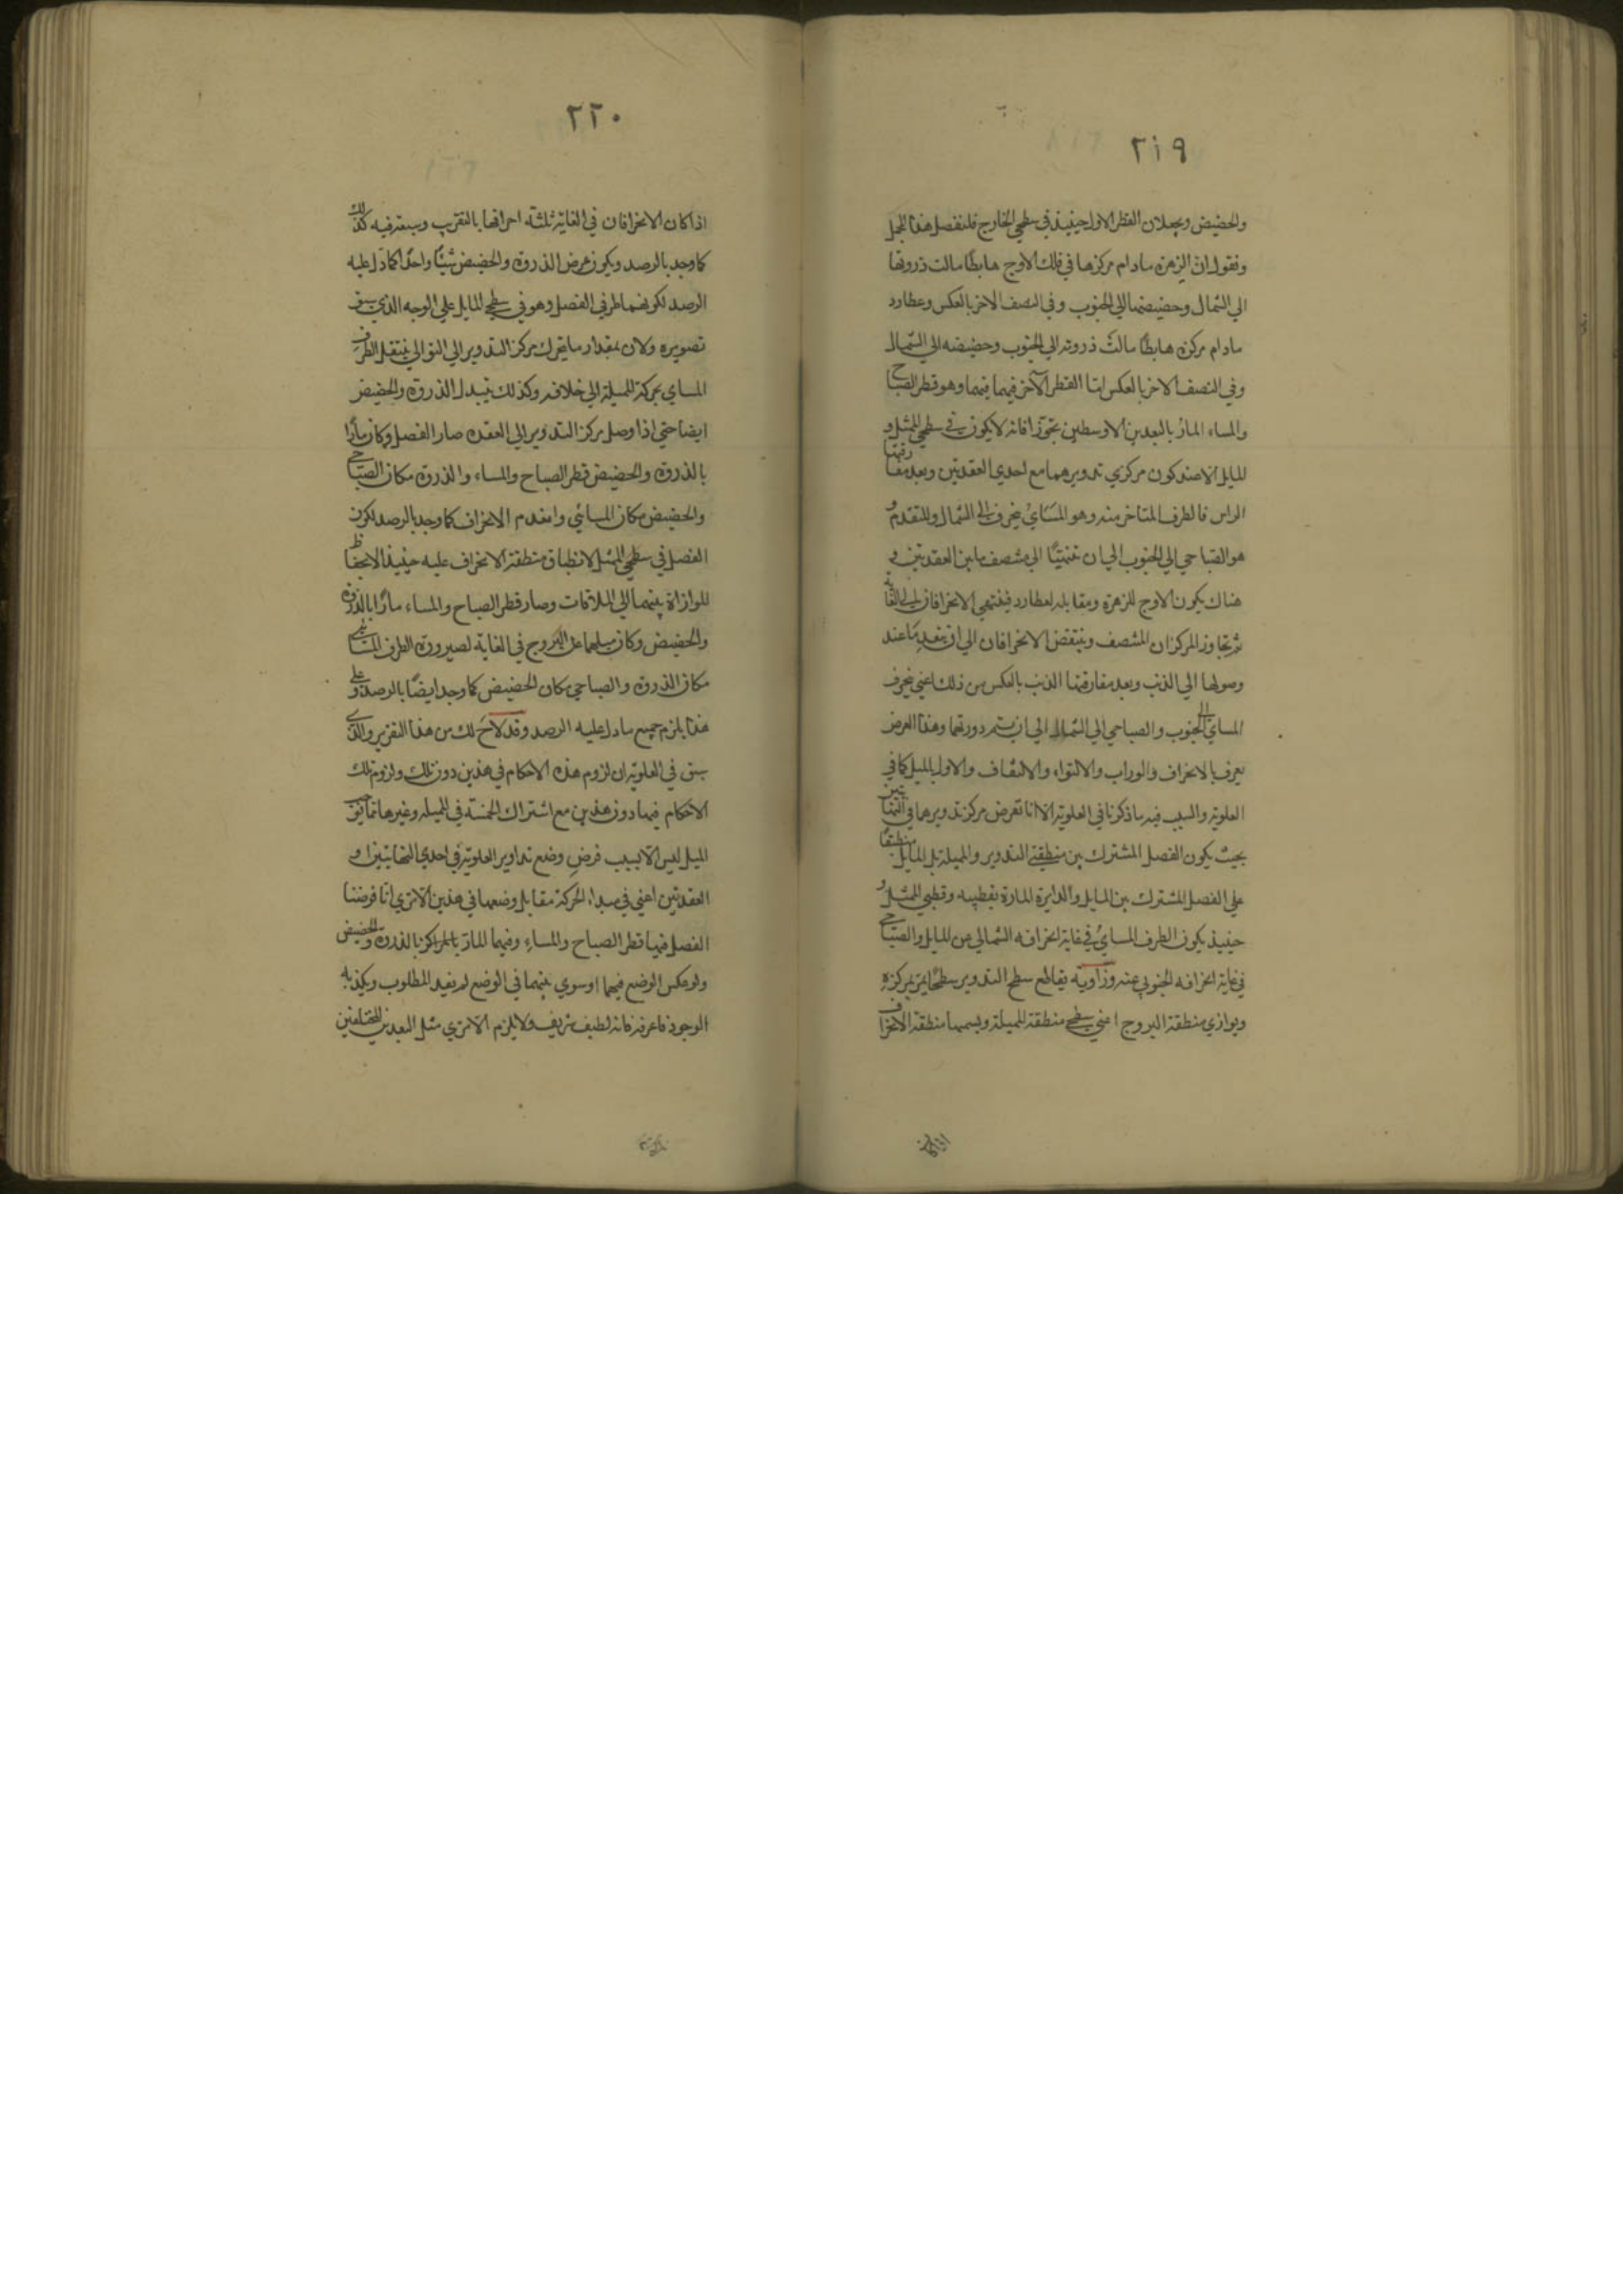 ٢١٩
والحضيض ويجعلان القطر الاول حينيذ في سطحي الخارج فلنفصل هذا المجمل
ونقول ان الزهرة مادام مركزها في فلك الاوج هابطًا مالت ذروتها
الي الشمال وحضيضها الي الجنوب وفي النصف الاخر بالعكس وعطارد
مادام مركزه هابطًا مالت ذروته الي الجنوب وحضيضه الي الشمال
وفي النصف الاخر بالعكس امّا القطر الآخر فيهما وهو قطر الصباح
والمساء المارّ بالبعدين الاوسطين تجوّزا فانه لا يكون في سطحي الممثل و
المايل الا عند كون مركزي تدويرهما مع احدي العقدتين وبعد مفارقتها
الراس فالطرف المتاخر منه وهو المسَايُ ينحرف الي الشمال والمتقدم و
هو الصباحي الي الجنوب الي ان ينتهيا الي منتصف ما بين العقدتين و
هناك يكون الاوج للزهرة ومقابله لعطارد فينتهي الانحرافان الي الغاية
ثم يتجاوز المركزان المنتصف وينتقض الانحرافان الي ان ينعدما عند
وصولها الي الذنب وبعد مفارقتها الذنب بالعكس من ذلك اعني ينحرف
المساي الي الجنوب والصباحي الي الشمال الي ان يتم دورتهما وهذا العرض
يعرف بالانحراف والوراب والالتواء والالتفاف والاول بالميل كما في
العلوية والسبب فيه ما ذكرنا في العلوية الا انا نفرض مركز تدويرهما في النهايتين
بحيث يكون الفصل المشترك بين منطقتي التدوير والمميلة بل المايل منطبقًا
علي الفصل المشترك بين المايل والدايرة المارة بقطبيه وقطبي الممثل و
حينيذ يكون الطرف المسايُ في غاية انحرافه الشمالي عن المايل والصباحي
في غاية انحرافه الجنوبي عنه وزاوية تقاطع سطح التدوير سطحًا يمرّ بمركزه
ويوازي منطقة البروج اعني سطح منطقة المميلة ويسميها منطقة الانحراف
اذا كان
٢٢٠
اذا كان الانحرافان في الغاية ثلثة اجزاء بالتقريب ويستمر فيه كذلك
كما وجد بالرصد ويكون عرض الذروة والحضيض شيئًا واحدًا كما دل عليه
الرصد لكونهما طرفي الفصل وهو في سطح المايل علي الوجه الذي سبق
تصويره ولان بمقدار ما يتحرك مركز التدوير الي التوالي ينتقل الطرف
المساي بحركة المميلة الي خلافه وكذلك يتبدل الذروة والحضيض
ايضا حتي اذا وصل مركز التدوير الي العقدة صار الفصل وكان مارًّا
بالذروة والحضيض قطر الصباح والمساء والذروة مكان الصباحي
والحضيض مكان المسائي وانعدم الانحراف كما وجد بالرصد لكون
الفصل في سطحي الممثل لانطباق منطقة الانحراف عليه حينيذ لانحفاظ
الموازاة بينهما الي الملاقات وصار قطر الصباح والمساء مارًّا بالذروة
والحضيض وكان ميلهما عن البروج في الغاية لصيرورة الطرف المسائي
مكان الذروة والصباحي مكان الحضيض كما وجد ايضًا بالرصد وعلي
هذا يلزم جميع ما دل عليه الرصد وقد لاحَ لك من هذا التقرير والذي
سبق في العلوية ان لزوم هذه الاحكام في هذين دون تلك ولزوم تلك
الاحكام فيها دون هذين مع اشتراك الخمسة في المميلة وغيرها مما يوجب
الميل ليس الا بسبب فرضِ وضع تداوير العلوية في احدي النهايتين او
العقدتين اعني في مبداء الحركة مقابل وضعها في هذين الا تري انا فرضنا
الفصل فيها قطر الصباح والمساءِ وفيهما المارّ بالمراكز بالذروة والحضيض
ولو عكس الوضع فيهما او سوي بينهما في الوضع لم يفيد المطلوب ويكذبه
الوجود فاعرفه فانه لطيف شريف ولا يلزم الا تري مثل البعدين المختلفين